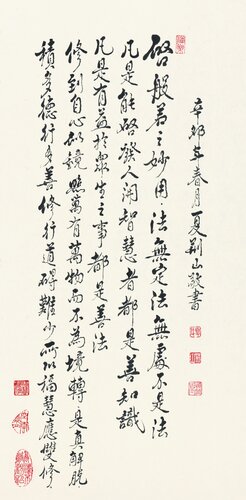 辛卯年春月夏荆山敬書
啓般若之妙用法無定法無處不是法
凡是能啓發人開智慧者都是善知識
凡是有益於眾生之事都是善法
修到自心如鏡照萬有萬物而不為境轉是真解脫
積多德行多善修行道碍難少所以福慧應雙修